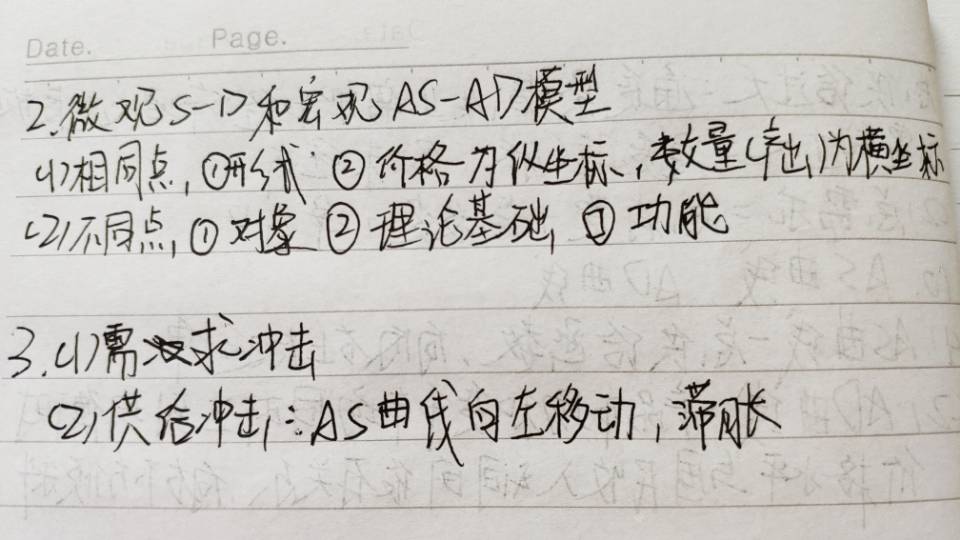 Date. Page.
2.微观S-D和宏观AS-AD模型
(1)相同点,①形式 ②价格为纵坐标,数量(产出)为横坐标
(2)不同点,①对象 ②理论基础,③功能
3.(1)需求冲击
(2)供给冲击:AS曲线向左移动,滞胀